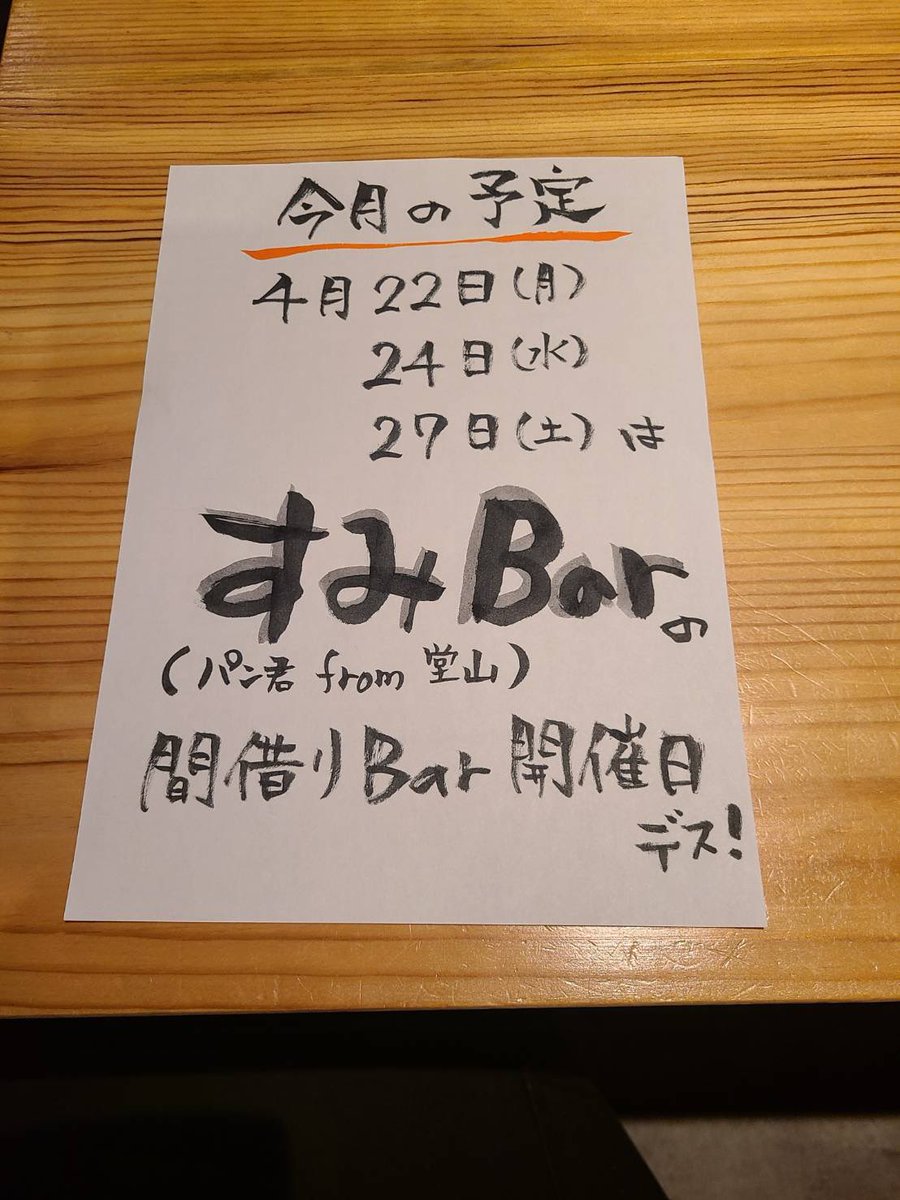 今月の予定
4月22日(月)
24日(水)
27日(土)は
すみBarの
(パン君 from 堂山)
間借りBar開催日
デス!